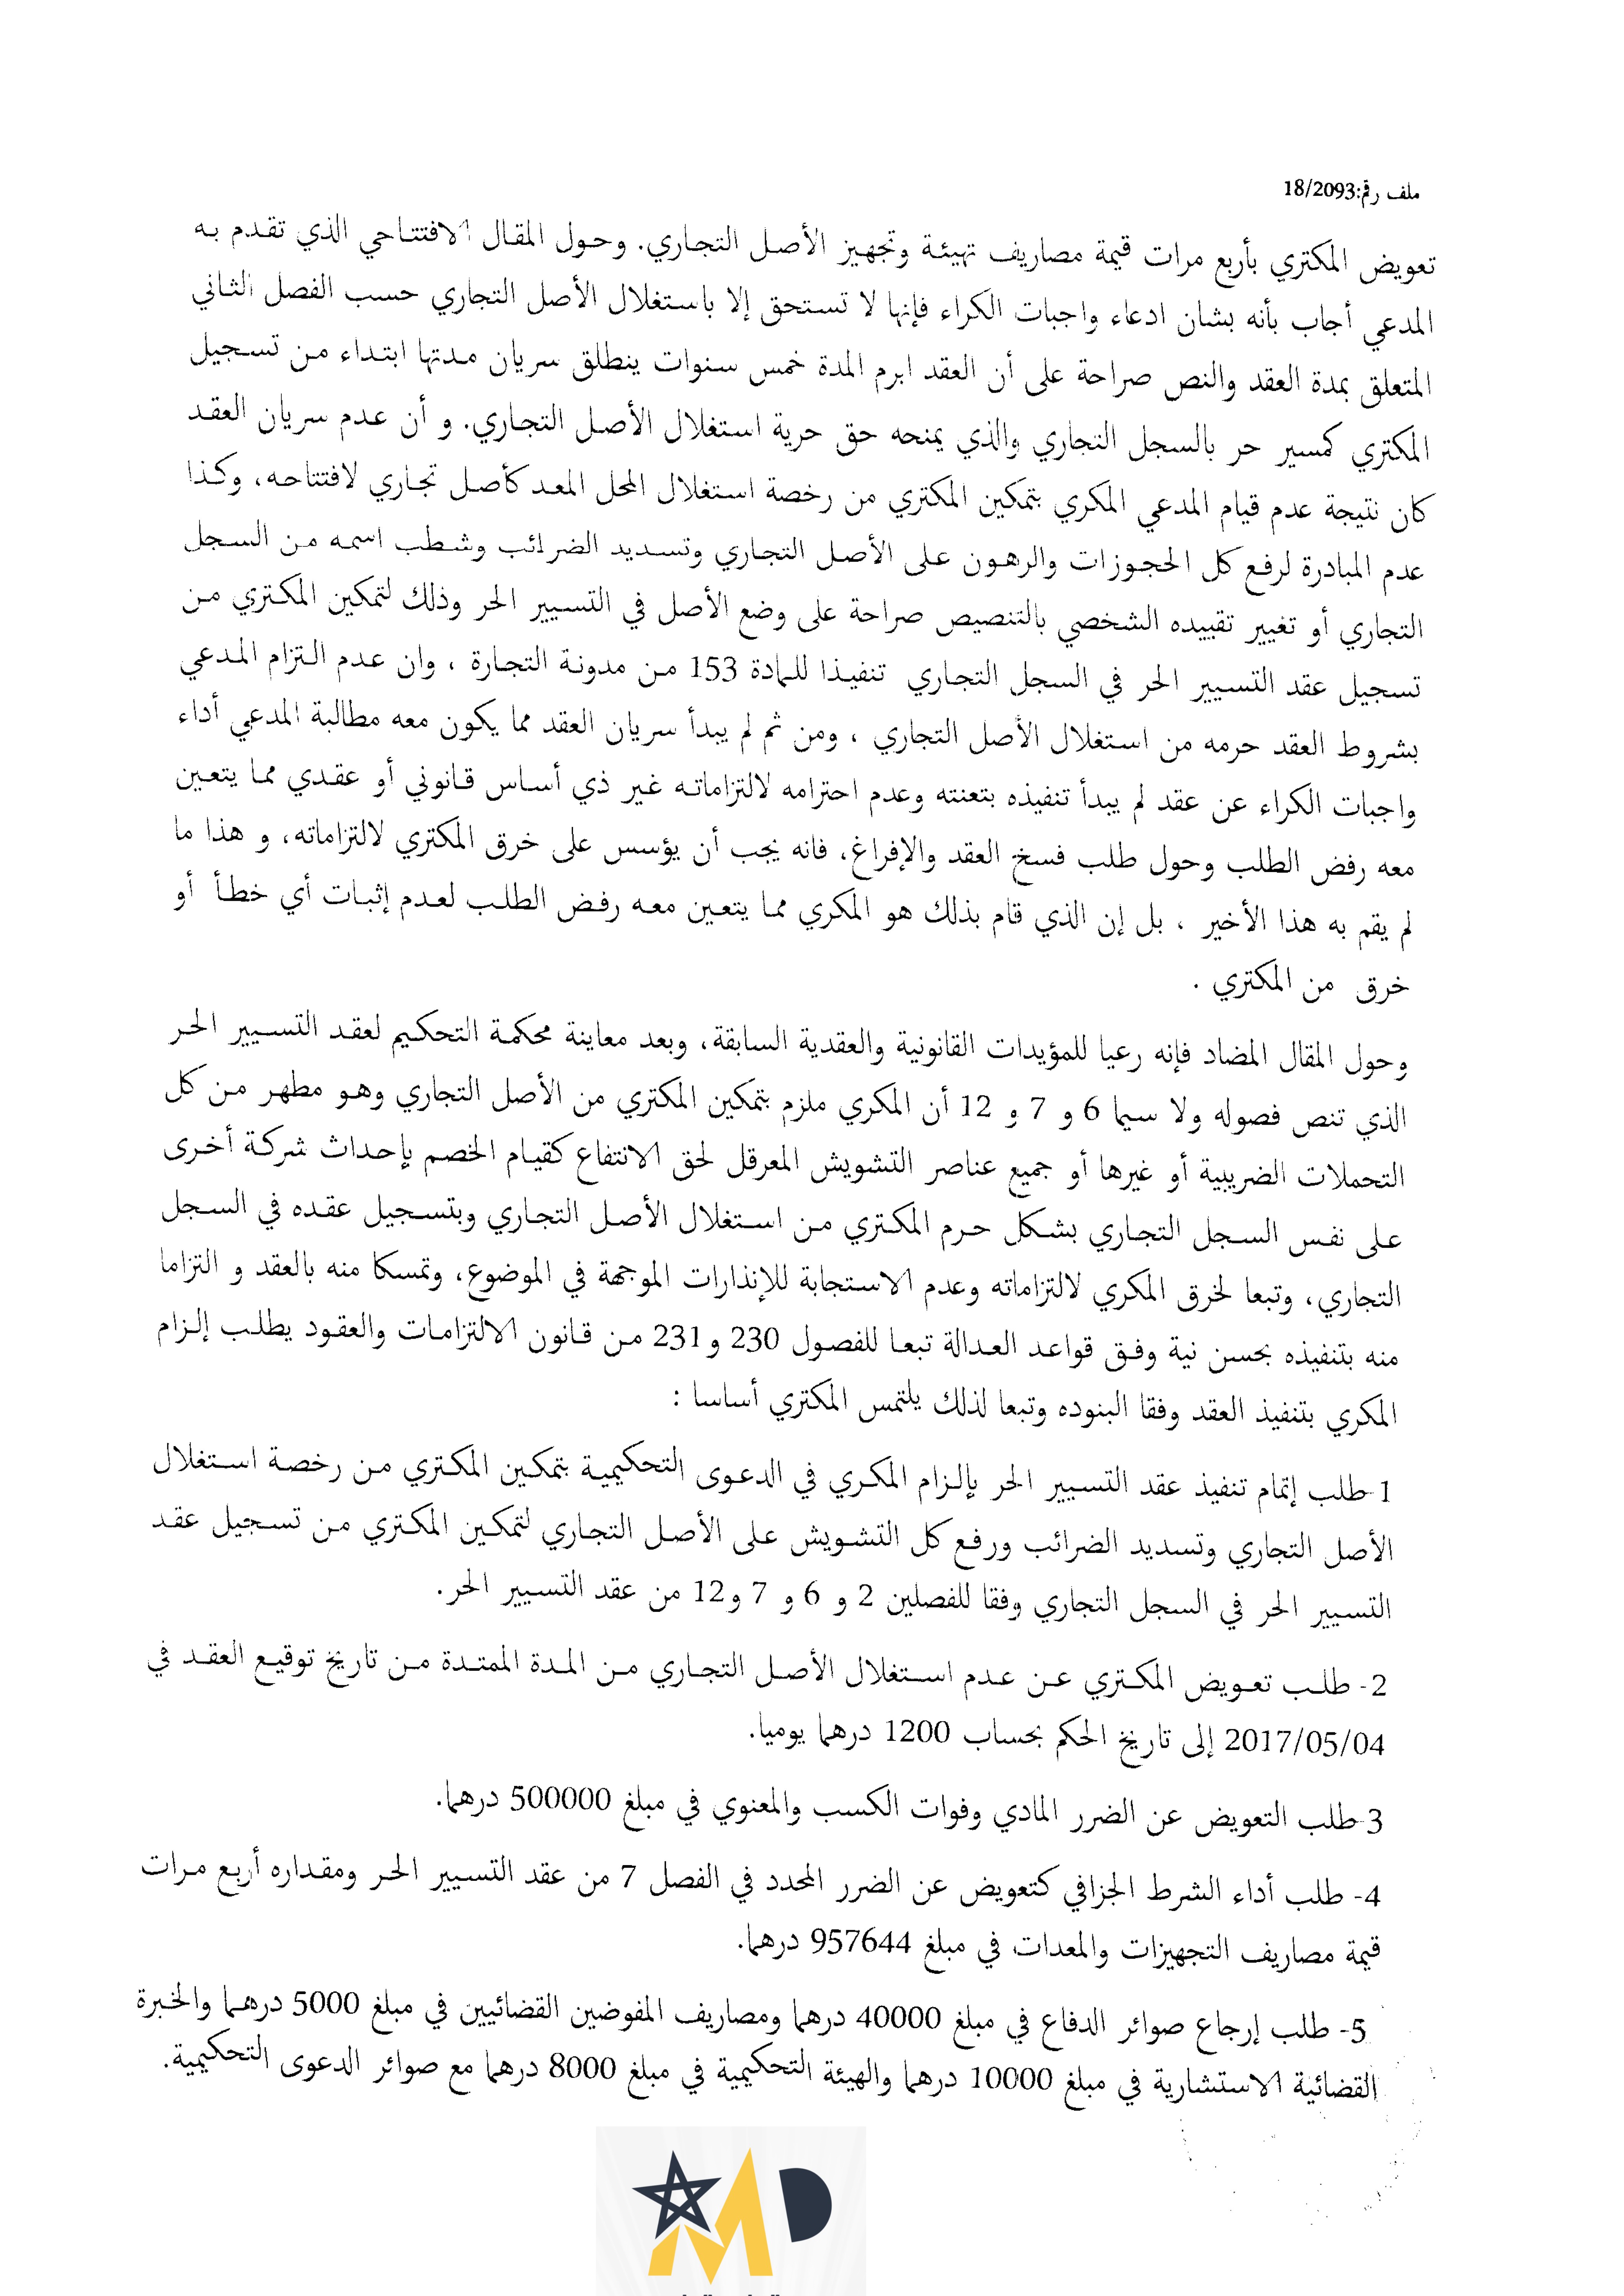 ملف رقم:18/2093
تعويض المكتري بأربع مرات قيمة مصاريف تهيئة وتجهيز الأصل التجاري. وحول المقال الافتتاحي الذي تقدم به
المدعي أجاب بأنه بشان ادعاء واجبات الكراء فإنها لا تستحق إلا باستغلال الأصل التجاري حسب الفصل الثاني
المتعلق بمدة العقد والنص صراحة على أن العقد ابرم المدة خمس سنوات ينطلق سريان مدتها ابتداء من تسجيل
المكتري كمسير حر بالسجل التجاري والذي يمنحه حق حرية استغلال الأصل التجاري. و أن عدم سريان العقد
كان نتيجة عدم قيام المدعي المكري بتمكين المكتري من رخصة استغلال المحل المعد كأصل تجاري لافتتاحه، وكذا
عدم المبادرة لرفع كل الحجوزات والرهون على الأصل التجاري وتسديد الضرائب وشطب اسمه من السجل
التجاري أو تغيير تقييده الشخصي بالتنصيص صراحة على وضع الأصل في التسيير الحر وذلك لتمكين المكتري من
تسجيل عقد التسيير الحر في السجل التجاري تنفيذا للمادة 153 من مدونة التجارة ، وان عدم التزام المدعي
بشروط العقد حرمه من استغلال الأصل التجاري ، ومن ثم لم يبدأ سريان العقد مما يكون معه مطالبة المدعي أداء
واجبات الكراء عن عقد لم يبدأ تنفيذه بتعنته وعدم احترامه لالتزاماته غير ذي أساس قانوني أو عقدي مما يتعين
معه رفض الطلب وحول طلب فسخ العقد والإفراغ، فانه يجب أن يؤسس على خرق المكتري لالتزاماته، و هذا ما
لم يقم به هذا الأخير ، بل إن الذي قام بذلك هو المكري مما يتعين معه رفض الطلب لعدم إثبات أي خطأ أو
خرق من المكتري .
وحول المقال المضاد فإنه رعيا للمؤيدات القانونية والعقدية السابقة، وبعد معاينة محكمة التحكيم لعقد التسيير الحر
الذي تنص فصوله ولا سيما 6 و 7 و 12 أن المكري ملزم بتمكين المكتري من الأصل التجاري وهو مطهر من كل
التحملات الضريبية أو غيرها أو جميع عناصر التشويش المعرقل لحق الانتفاع كقيام الخصم بإحداث شركة أخرى
على نفس السجل التجاري بشكل حرم المكتري من استغلال الأصل التجاري وبتسجيل عقده في السجل
التجاري، وتبعا لخرق المكري لالتزاماته وعدم الاستجابة للإنذارات الموجهة في الموضوع، وتمسكا منه بالعقد و التزاما
منه بتنفيذه بحسن نية وفق قواعد العدالة تبعا للفصول 230 و231 من قانون الالتزامات والعقود يطلب إلزام
المكري بتنفيذ العقد وفقا البنوده وتبعا لذلك يلتمس المكتري أساسا :
1-طلب إتمام تنفيذ عقد التسيير الحر بإلزام المكري في الدعوى التحكيمية بتمكين المكتري من رخصة استغلال
الأصل التجاري وتسديد الضرائب ورفع كل التشويش على الأصل التجاري لتمكين المكتري من تسجيل عقد
التسيير الحر في السجل التجاري وفقا للفصلين 2 و 6 و 7 و12 من عقد التسيير الحر.
2- طلب تعويض المكتري عن عدم استغلال الأصل التجاري من المدة الممتدة من تاريخ توقيع العقد في
2017/05/04 إلى تاريخ الحكم بحساب 1200 درهما يوميا.
3-طلب التعويض عن الضرر المادي وفوات الكسب والمعنوي في مبلغ 500000 درهما.
4- طلب أداء الشرط الجزافي كتعويض عن الضرر المحدد في الفصل 7 من عقد التسيير الحر ومقداره أربع مرات
قيمة مصاريف التجهيزات والمعدات في مبلغ 957644 درهما.
5- طلب إرجاع صوائر الدفاع في مبلغ 40000 درهما ومصاريف المفوضين القضائيين في مبلغ 5000 درهما والخبرة
القضائية الاستشارية في مبلغ 10000 درهما والهيئة التحكيمية في مبلغ 8000 درهما مع صوائر الدعوى التحكيمية.